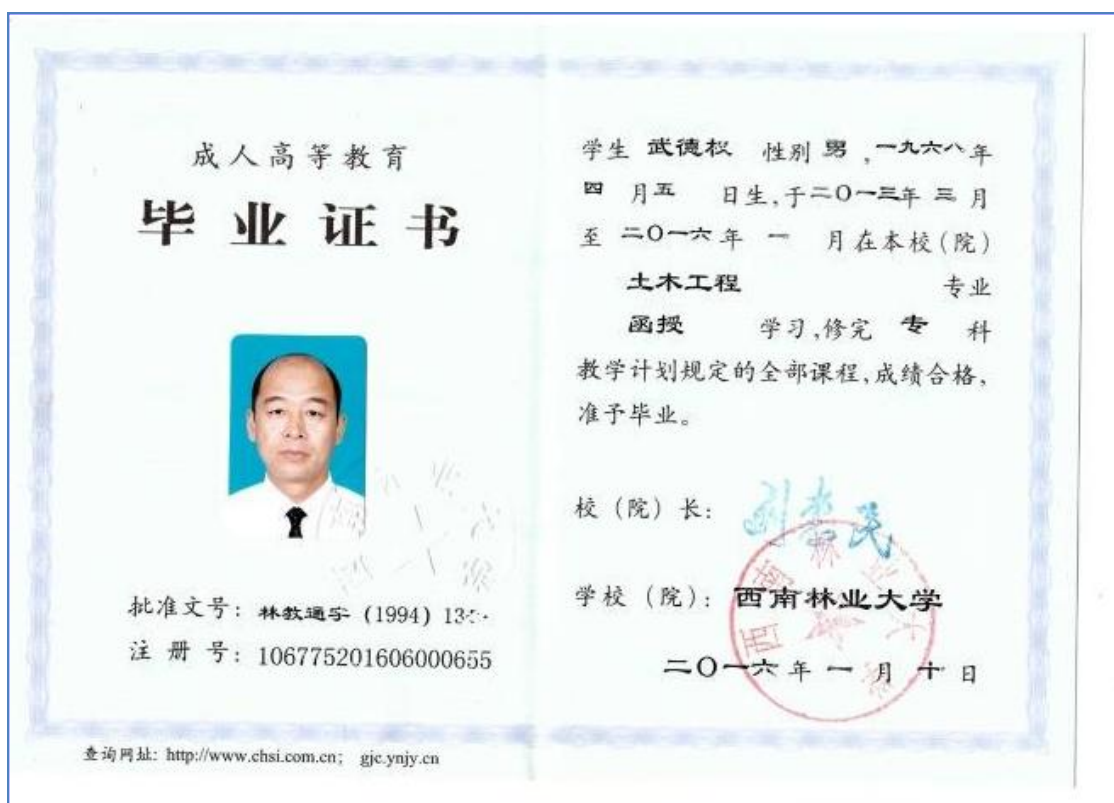 成人高等教育
毕业证书
批准文号：林教通字 (1994) 13
注 册 号：106775201606000655
查询网址: http://www.chsi.com.cn; gjc.ynjy.cn
学生 武德权 性别 男 ,一九六八年
四 月五 日生,于二〇一三年 三 月
至 二〇一六年 一 月在本校(院)
土木工程 专业
函授 学习,修完 专 科
教学计划规定的全部课程,成绩合格,
准予毕业。
校（院）长：
学校（院）：西南林业大学
西南林业大学
二〇一六年 一 月 十 日